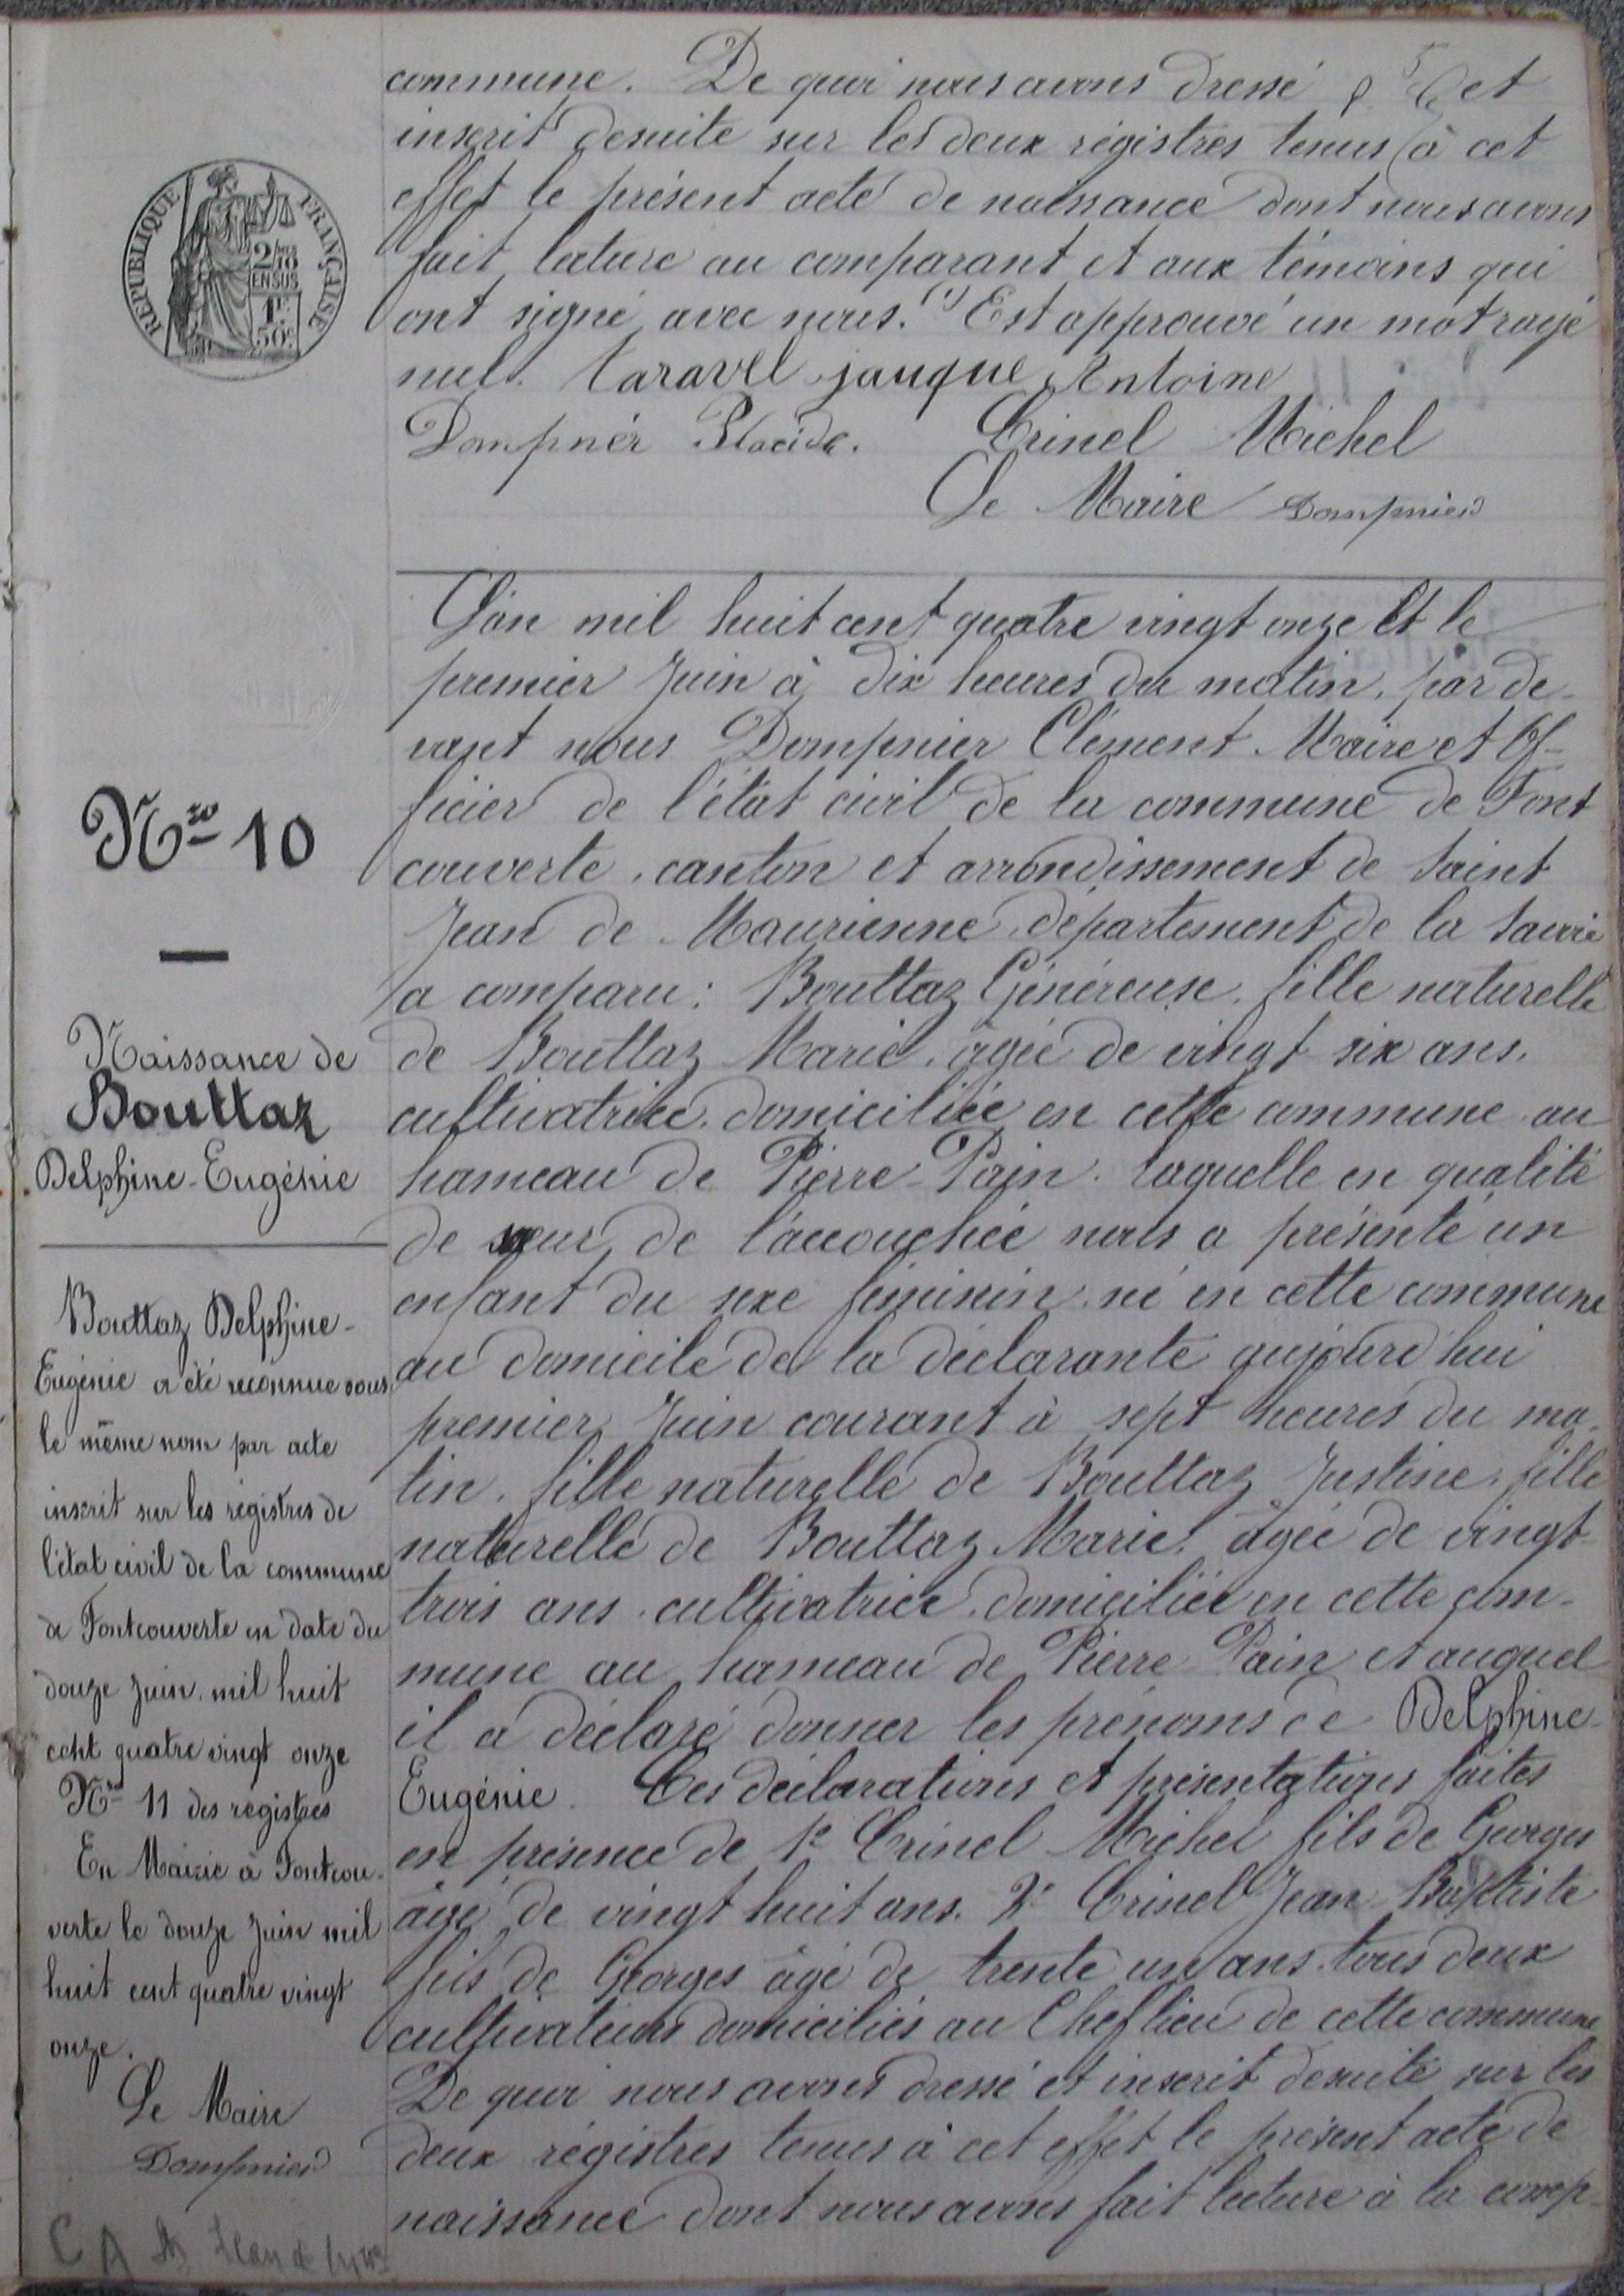 commune. De quoi nous avons dressé et
inscrit desuite sur les deux régistres tenus à cet
effet le présent acte de naissance dont nous avons
fait lecture au comparant et aux témoins qui
ont signé avec nous. (1) Est approuvé un mot rayé
nul. Taravel jauque Antoine
Dompnér Placide. Crinel Michel
Le Maire Dompnier
REPUBLIQUE FRANÇAISE
2/10 EN SUS
1F 50C
Nro 10
Naissance de
Bouttaz
Delphine-Eugénie
Bouttaz Delphine-
Eugénie a été reconnue sous
le même nom par acte
inscrit sur les régistres de
l'état civil de la commune
de Fontcouverte en date du
douze juin mil huit
cent quatre vingt onze
Nro 11 des registres
En Mairie à Fontcou-
verte le douze juin mil
huit cent quatre vingt
onze.
Le Maire
Dompnier
L'an mil huit cent quatre vingt onze et le
premier Juin à dix heures du matin, par de-
vant nous Dompnier Clément Maire et Of-
ficier de l'état civil de la commune de Font
couverte, canton et arrondissement de Saint
Jean de Maurienne département de la Savoie
a comparu: Bouttaz Généreuse, fille naturelle
de Bouttaz Marie, agée de vingt six ans,
cultivatrice, domiciliée en cette commune au
hameau de Pierre-Pain. laquelle en qualité
de sœur de l'accouchée nous a présenté un
enfant du sexe féminin, né en cette commune
au domicile de la déclarante aujourd'hui
premier Juin courant à sept heures du ma-
tin, fille naturelle de Bouttaz Justine, fille
naturelle de Bouttaz Marie, âgée de vingt
trois ans, cultivatrice, domiciliée en cette com-
mune au hameau de Pierre Pain et auquel
il a déclaré donner les prénoms de Delphine-
Eugénie. Ces déclarations et présentations faites
en présence de 1° Crinel Michel fils de Georges
âgé de vingt huit ans. 2° Crinel Jean Baptiste
fils de Georges âgé de trente un ans, tous deux
cultivateurs domiciliés au Cheflieu de cette commune
De quoi nous avons dressé et inscrit desuite sur les
deux régistres tenus à cet effet le présent acte de
naissance dont nous avons fait lecture à la comp-